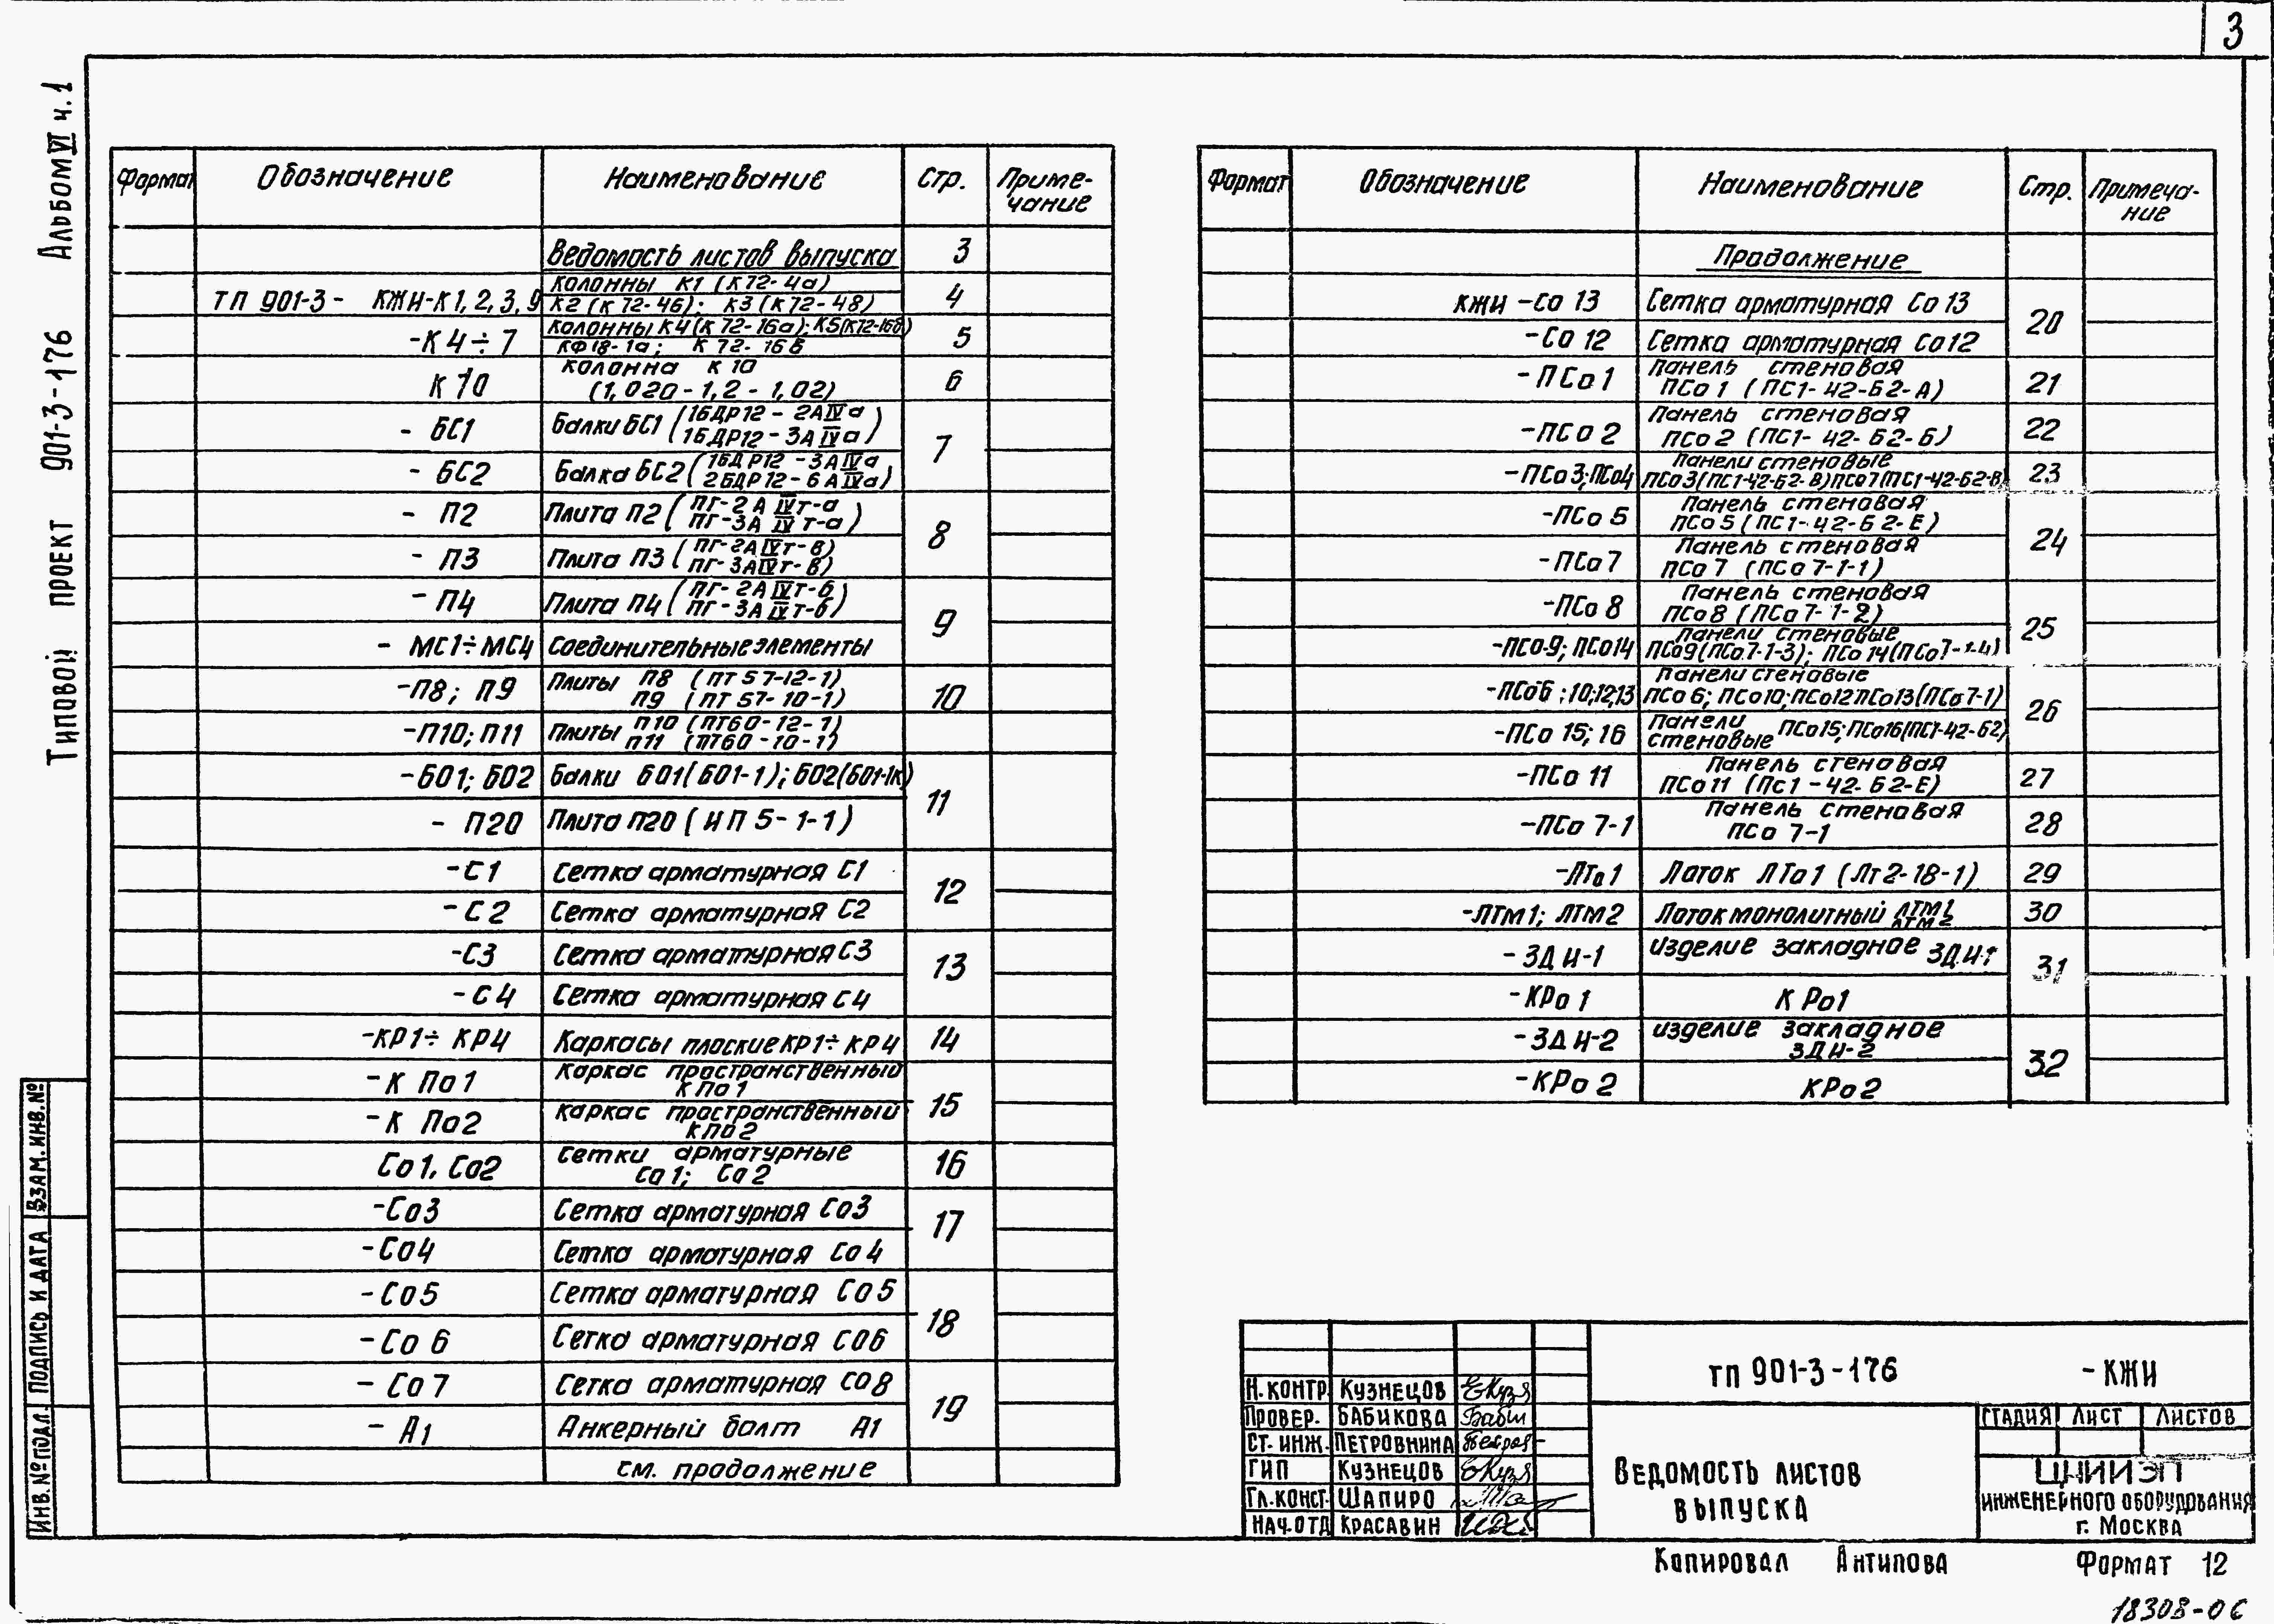 3
Типовой проект 901-3-176 Альбом VI ч.1
Формат Обозначение Наименование Стр. Приме-
чание
Ведомость листов выпуска 3
ТП 901-3- КЖИ-К1,2,3,9 Колонны К1 (К72-4а)
К2 (К72-46); К3 (К72-48) 4
-К4÷7 Колонны К4 (К72-16а); К5(К72-16б)
КФ18-1а; К72-16в 5
К10 Колонна К10
(1,020-1,2-1,02) 6
- БС1 Балки БС1 (1БДР12-2АIVа
1БДР12-3АIVа) 7
- БС2 Балка БС2 (1БДР12-3АIVа
2БДР12-6АIVа)
- П2 Плита П2 (ПГ-2АIVт-а
ПГ-3АIVт-а) 8
- П3 Плита П3 (ПГ-2АIVт-в)
ПГ-3АIVт-в)
- П4 Плита П4 (ПГ-2АIVт-б
ПГ-3АIVт-б) 9
- МС1÷МС4 Соединительные элементы
-П8; П9 Плиты П8 (ПТ57-12-1)
П9 (ПТ57-10-1) 10
-П10; П11 Плиты П10 (ПТ60-12-1)
П11 (ПТ60-10-1)
-Б01; Б02 Балки Б01(Б01-1); Б02(Б01-1к) 11
- П20 Плита П20 (ИП5-1-1)
-С1 Сетка арматурная С1 12
-С2 Сетка арматурная С2
-С3 Сетка арматурная С3 13
-С4 Сетка арматурная С4
-КР1÷КР4 Каркасы плоские КР1÷КР4 14
-КПо1 Каркас пространственный
КПо1 15
-КПо2 Каркас пространственный
КПо2
Со1, Со2 Сетки арматурные
Со1; Со2 16
-Со3 Сетка арматурная Со3 17
-Со4 Сетка арматурная Со4
-Со5 Сетка арматурная Со5 18
-Со6 Сетка арматурная Со6
-Со7 Сетка арматурная Со8 19
- А1 Анкерный болт А1
см. продолжение
Формат Обозначение Наименование Стр. Примеча-
ние
Продолжение
КЖИ-Со13 Сетка арматурная Со13 20
-Со12 Сетка арматурная Со12
-ПСо1 Панель стеновая
ПСо1 (ПС1-42-Б2-А) 21
-ПСо2 Панель стеновая
ПСо2 (ПС1-42-Б2-Б) 22
-ПСо3; ПСо4 Панели стеновые
ПСо3(ПС1-42-Б2-В) ПСо7(ПС1-42-Б2-В) 23
-ПСо5 Панель стеновая
ПСо5 (ПС1-42-Б2-Е) 24
-ПСо7 Панель стеновая
ПСо7 (ПСо7-1-1)
-ПСо8 Панель стеновая
ПСо8 (ПСо7-1-2) 25
-ПСо9; ПСо14 Панели стеновые
ПСо9(ПСо7-1-3); ПСо14(ПСо7-1-4)
-ПСо6; 10;12;13 Панели стеновые
ПСо6; ПСо10; ПСо12 ПСо13(ПСо7-1) 26
-ПСо15; 16 Панели
стеновые ПСо15; ПСо16(ПС1-42-Б2)
-ПСо11 Панель стеновая
ПСо11 (Пс1-42-Б2-Е) 27
-ПСо7-1 Панель стеновая
ПСо7-1 28
-ЛТо1 Лоток ЛТо1 (Лт2-18-1) 29
-ЛТм1; ЛТм2 Лоток монолитный ЛТМ1
ЛТМ2 30
-ЗДИ-1 Изделие закладное ЗДИ-1 31
-КРо1 КРо1
-ЗДИ-2 Изделие закладное
ЗДИ-2 32
-КРо2 КРо2
Инв.№подл. Подпись и дата Взам.инв.№
Н.контр. Кузнецов
Провер. Бабикова
Ст.инж. Петровнина
ГИП Кузнецов
Гл.конст. Шапиро
Нач.отд Красавин
тп 901-3-176 -КЖИ
Ведомость листов
выпуска
Стадия Лист Листов
ЦНИИЭП
инженерного оборудования
г. Москва
Копировал Антипова Формат 12
18308-06